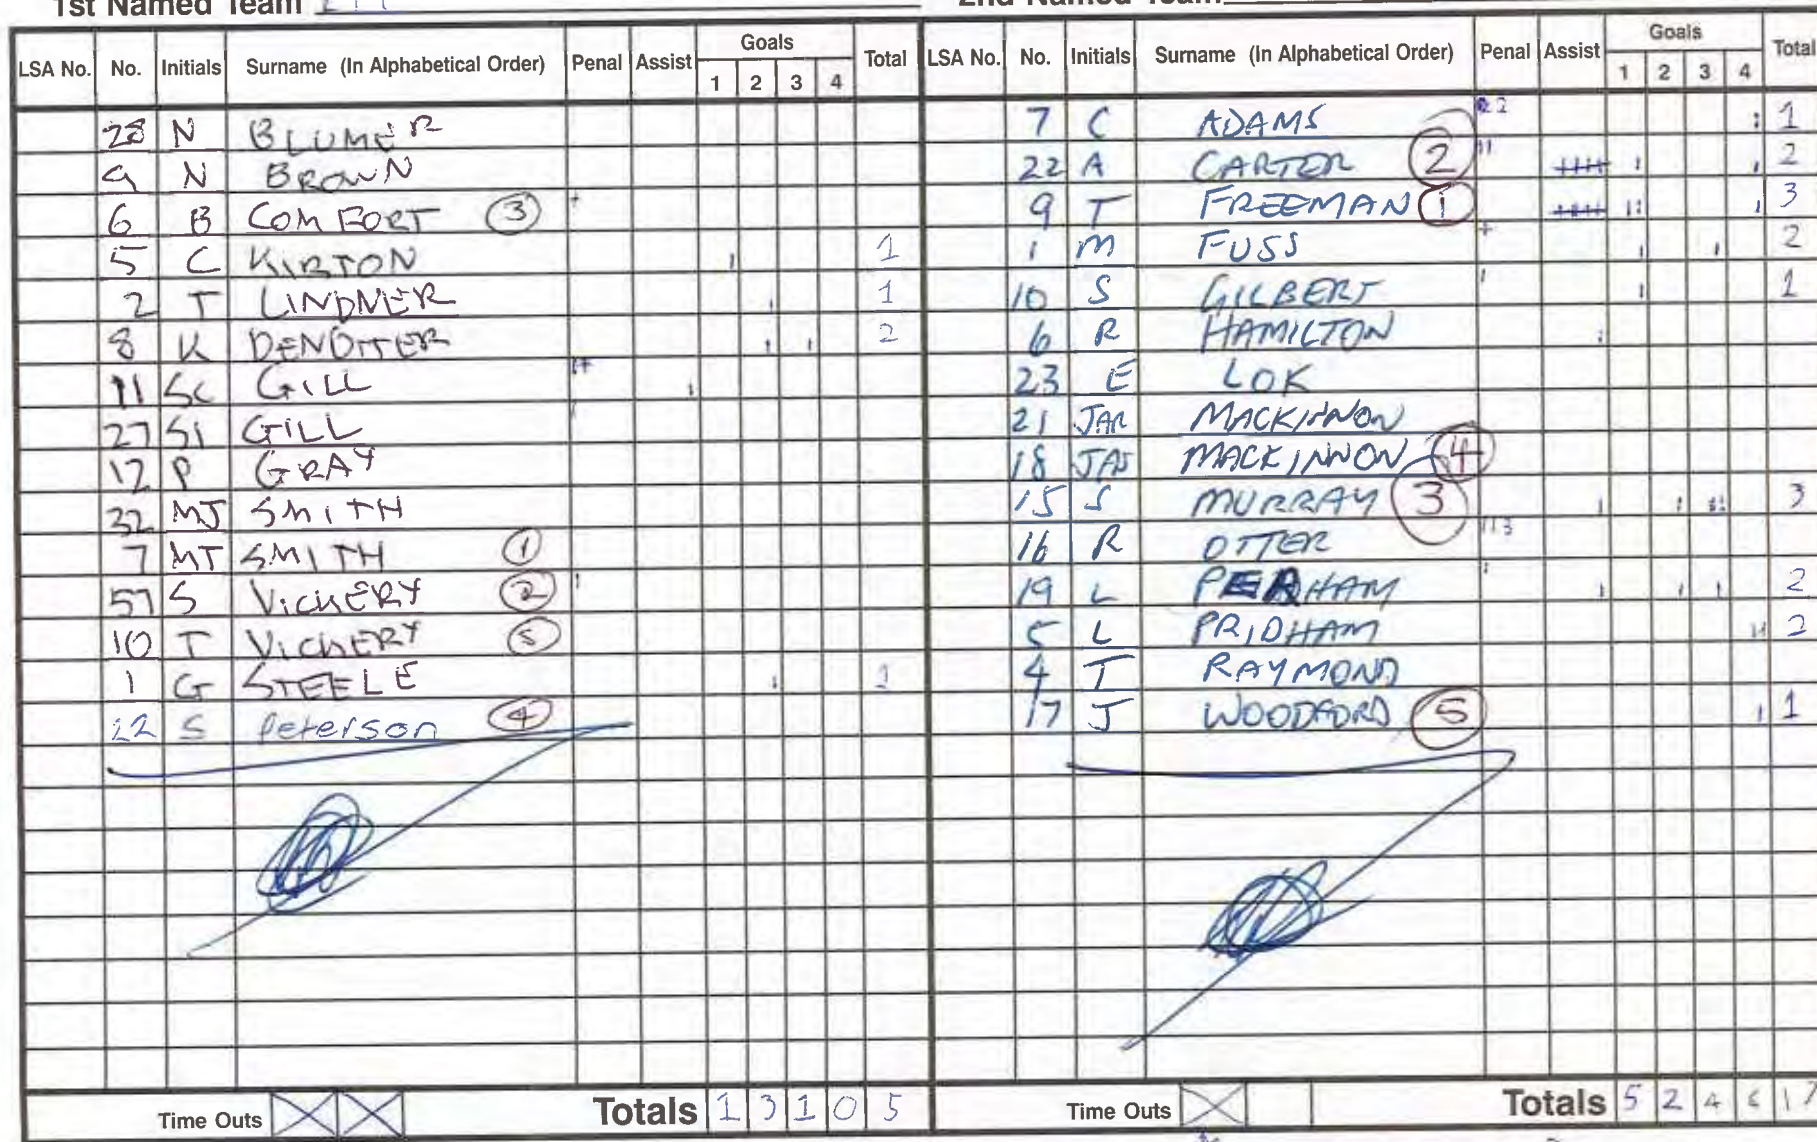 1st Named Team
2nd Named Team
LSA No. No. Initials Surname (In Alphabetical Order) Penal Assist Goals 1 2 3 4 Total
28 N BLUMER
9 N BROWN
6 B COMFORT 3
5 C KIRTON 1
2 T LINDNER 1
8 K DENOTTER 2
11 SC GILL
27 SI GILL
12 P GRAY
32 MJ SMITH
7 MT SMITH 1
57 S VICKERY 2
10 T VICKERY 5
1 G STEELE 1
22 S Peterson 4
Time Outs Totals 1 3 1 0 5
LSA No. No. Initials Surname (In Alphabetical Order) Penal Assist Goals 1 2 3 4 Total
7 C ADAMS 1
22 A CARTER 2 2
9 T FREEMAN 1 3
1 M FUSS 2
10 S GILBERT 1
6 R HAMILTON
23 E LOK
21 JAR MACKINNON
18 JAS MACKINNON 4
15 S MURRAY 3 3
16 R OTTER
19 L PERHAM 2
5 L PRIDHAM 2
4 T RAYMOND
17 J WOODFORD 5 1
Time Outs Totals 5 2 4 6 17